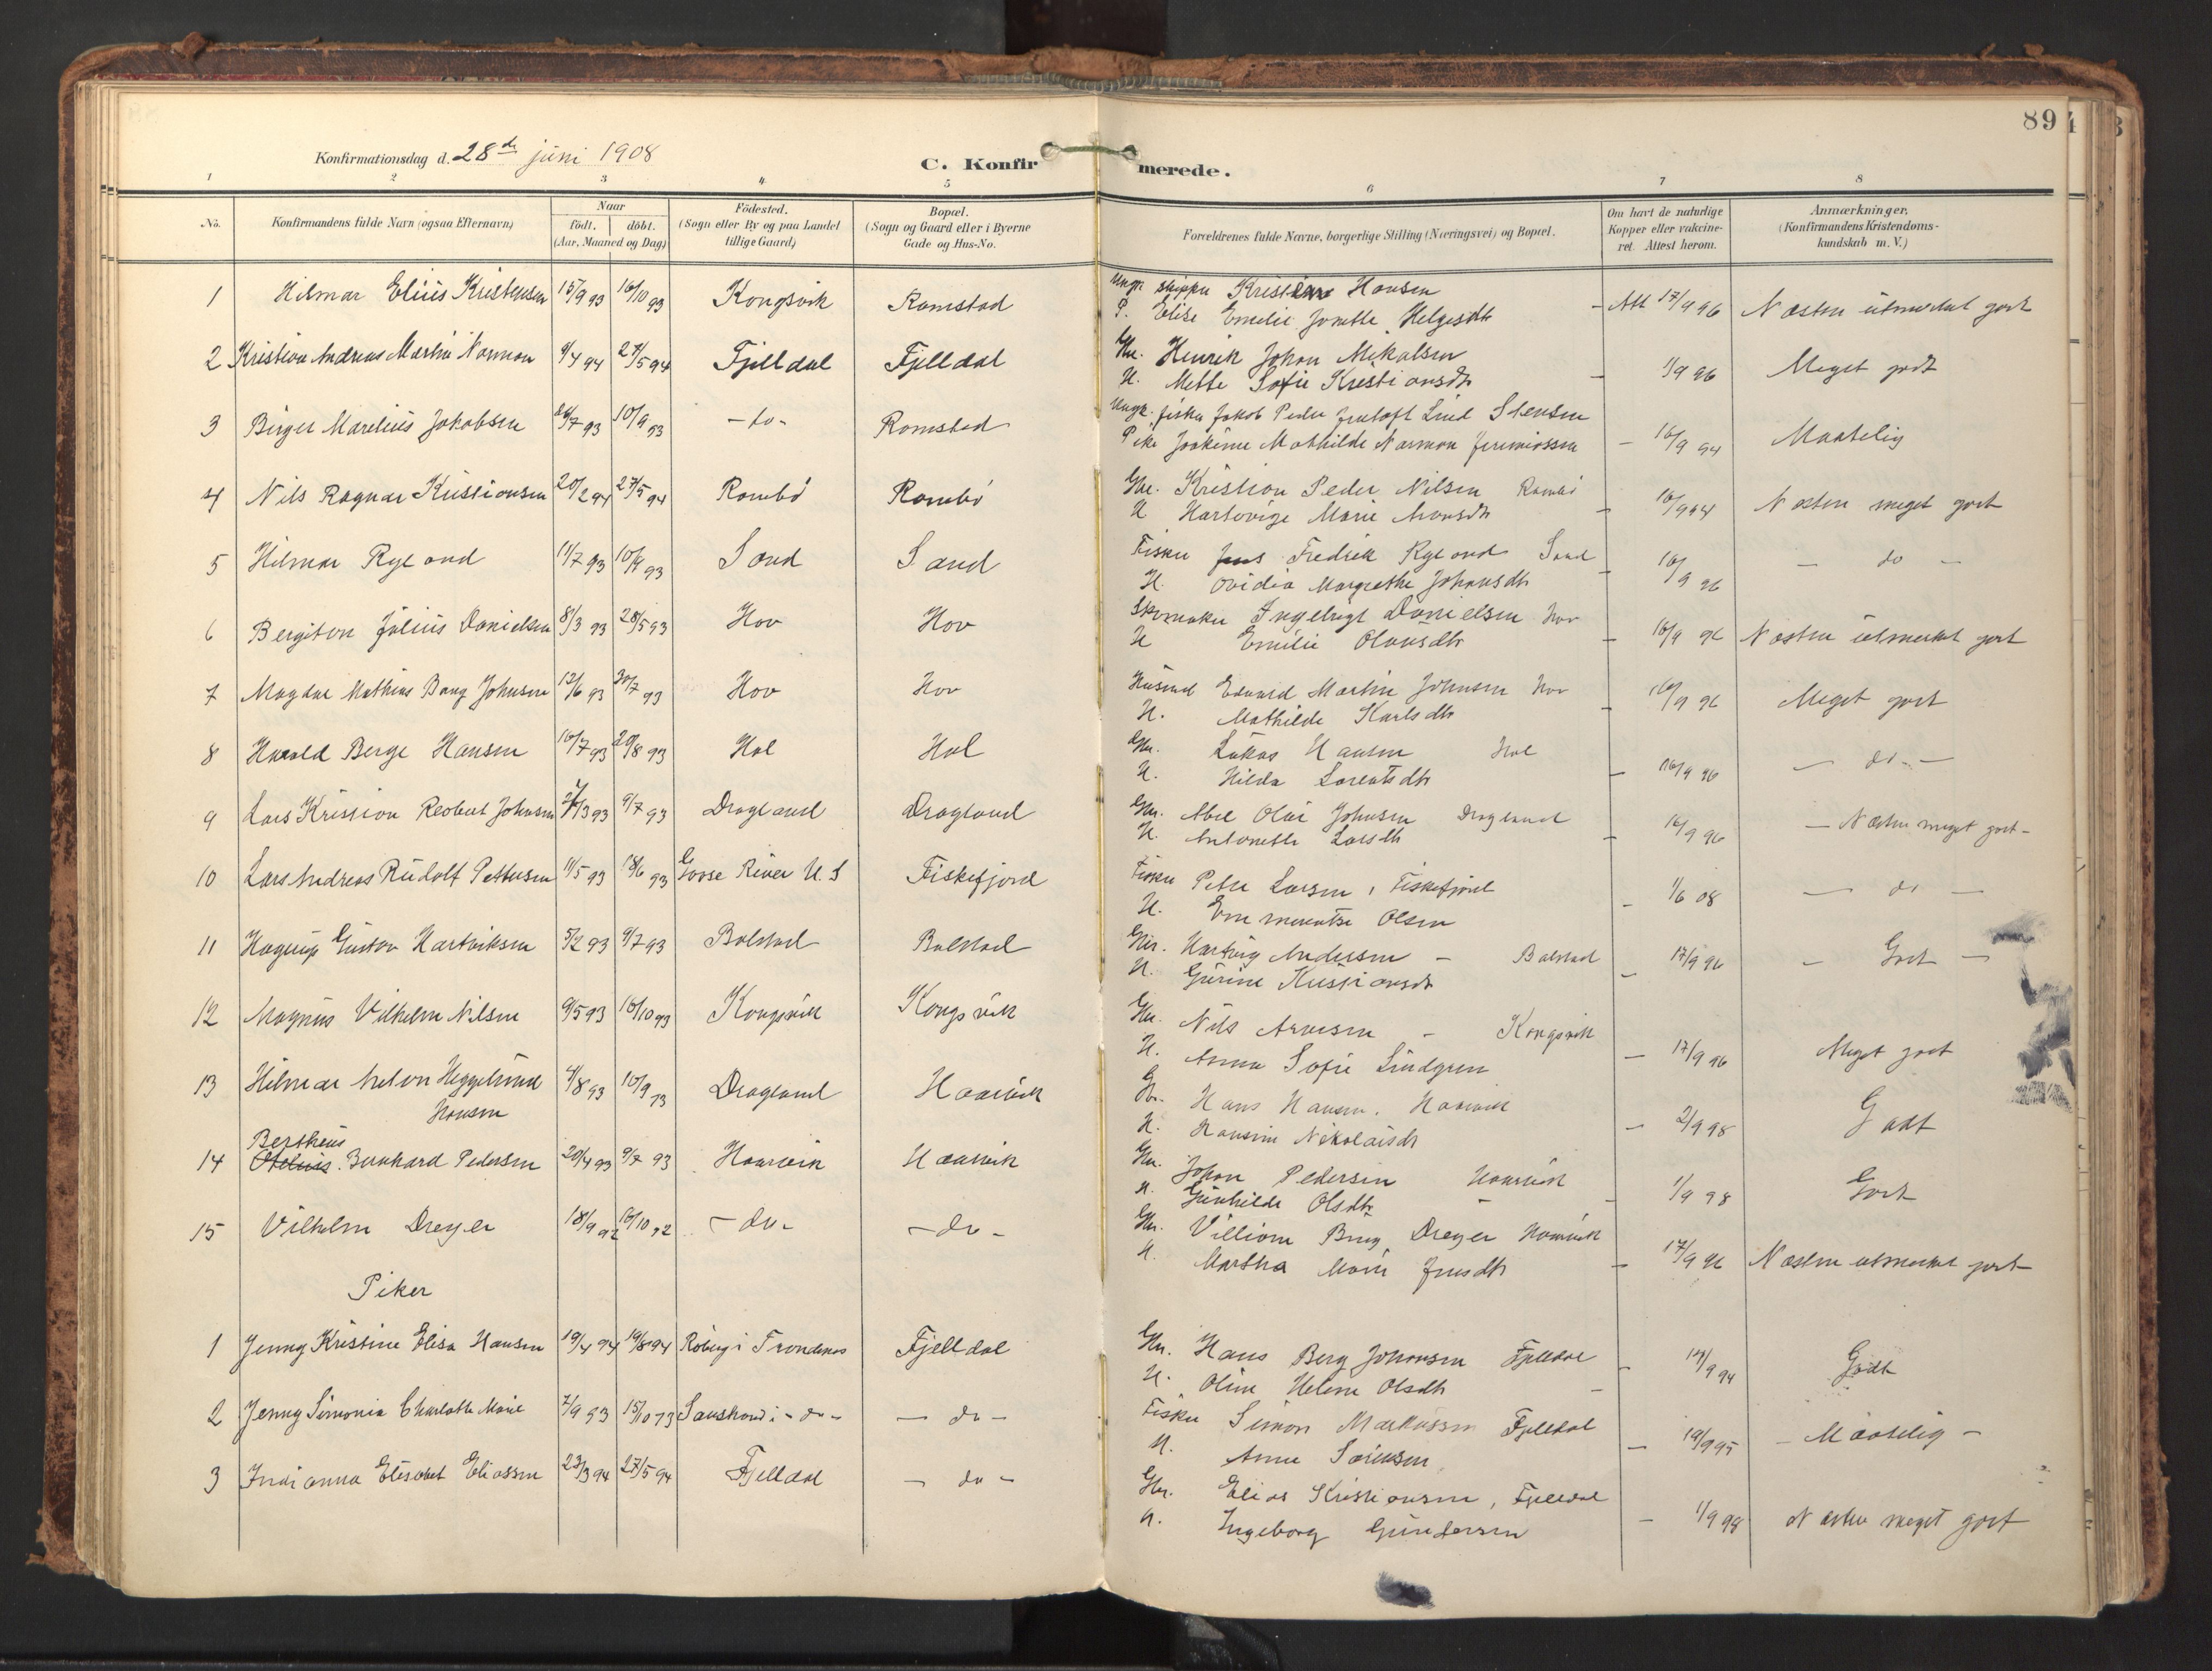 89
Konfirmationsdag d. 28de juni 1908
C. Konfirmerede.
1 2 3 4 5 6 7 8
No. Konfirmandens fulde Navn (ogsaa Efternavn) Naar födt. döbt. (Aar, Maaned og Dag) Födested. (Sogn eller By og paa Landet tillige Gaard) Bopæl. (Sogn og Gaard eller i Byerne Gade og Hus-No. Forældrenes fulde Navne, borgerlige Stilling (Næringsvei) og Bopæl. Om havt de naturlige Kopper eller vakcineret. Attest herom. Anmærkninger. (Konfirmandens Kristendomskundskab m. V.)
1 Hilmar Elius Kristensen 15/9 93 16/10 93 Kongsvik Ramstad Ungk. skipper Kristian Hansen
P. Elise Emelie Josette Helgesdtr - Att 17/9 96 Næsten utmerket godt
2 Kristian Andreas Martin Norman 9/4 94 27/5 94 Fjelldal Fjelldal Gbr. Henrik Johan Mikalsen
H. Mette Sofie Kristiansdtr - 1/9 96 Meget godt
3 Birger Marelius Jakobsen 26/7 93 10/9 93 - do - Ramstad Ungk. fisker Jakob Peder Lind Stensen
Pike Joakime Mathilde Norman Jeremiassen - 16/9 94 Maatelig
4 Nils Ragnar Kristiansen 20/2 94 27/5 94 Rambö Rambö Gbr. Kristian Peder Nilsen Rambö
H Hartvige Marie Aronsdtr - 16/9 94 Næsten meget godt
5 Hilmar Ryland 11/7 93 10/9 93 Sand Sand Fisker Jens Fredrik Ryland Sand
H. Ovidia Margrethe Johansdtr - 16/9 96 - do -
6 Bergiton Julius Danielsen 8/3 93 28/5 93 Hov Hov Skomaker Ingebrigt Danielsen Hov
H Emilie Olausdtr - 16/9 96 Næsten utmerket godt
7 Magdar Mathias Bang Johnsen 12/6 93 30/7 93 Hov Hov Husmd Edvard Martin Johnsen Hov
H. Mathilde Karlsdtr - 16/9 96 Meget godt
8 Harald Berge Hansen 16/7 93 20/8 93 Hol Hol Gbr. Lukas Hansen Hol
H. Hilda Lorentsdtr - 16/9 96 - do -
9 Lars Kristian Reobert Johnsen 27/3 93 9/7 93 Dragland Dragland Gbr. Abel Olai Johnsen Dragland
H. Antonette Larsdtr - 16/9 96 - Næsten meget godt -
10 Lars Andreas Rudolf Pettersen 11/5 93 18/6 93 Goose River U.S Fiskefjord Fisker Peter Larsen, Fiskefjord
H. Emmerentse Olsen - 1/6 08 - do -
11 Hagerup Gustav Hartviksen 5/2 93 9/7 93 Balstad Balstad Gbr. Hartvig Andersen - Balstad
H. Gurine Kristiansdtr - 17/9 96 - Godt -
12 Magnus Vilhelm Nilsen 9/5 93 16/10 93 Kongsvik Kongsvik Gbr. Nils Arnesen - Kongsvik
H. Anna Sofie Lindgren - 17/9 96 Meget godt
13 Hilmar Anton Heggelund Hansen 4/8 93 10/9 93 Dragland Haarvik Gbr. Hans Hansen. Haarvik
H. Hansine Nikolaisdtr - 2/9 98 Godt
14 Bertheus Bernhard Pedersen 20/4 93 9/7 93 Haarvik Haarvik Gbr. Johan Pedersen Haarvik
H. Gunhilde Olsdtr - 1/9 98 Godt
15 Vilhelm Dreyer 18/9 92 16/10 92 - do - - do - Gbr. Villiam Bing Dreyer Haarvik
H. Martha Marie Jensdtr - 17/9 96 Næsten utmerket godt
Piker
1 Jenny Kristine Elisa Hansen 19/4 94 19/8 94 Röberg i Trondenes Fjelldal Gbr. Hans Berg Johansen Fjelldal
H. Oline Helene Olsdtr - 14/9 94 Godt
2 Jenny Simonia Charlotte Marie 7/9 93 15/10 93 Sanstrand i - do - - do - Fisker Simon Markussen Fjelldal
H. Anne Sörensen - 19/9 95 - Maatelig -
3 Indianna Elisabet Eliassen 23/3 94 27/5 94 Fjelldal - do - Gbr. Elias Kristiansen, Fjelldal
H. Ingeborg Gundersen - 1/9 98 Næsten meget godt